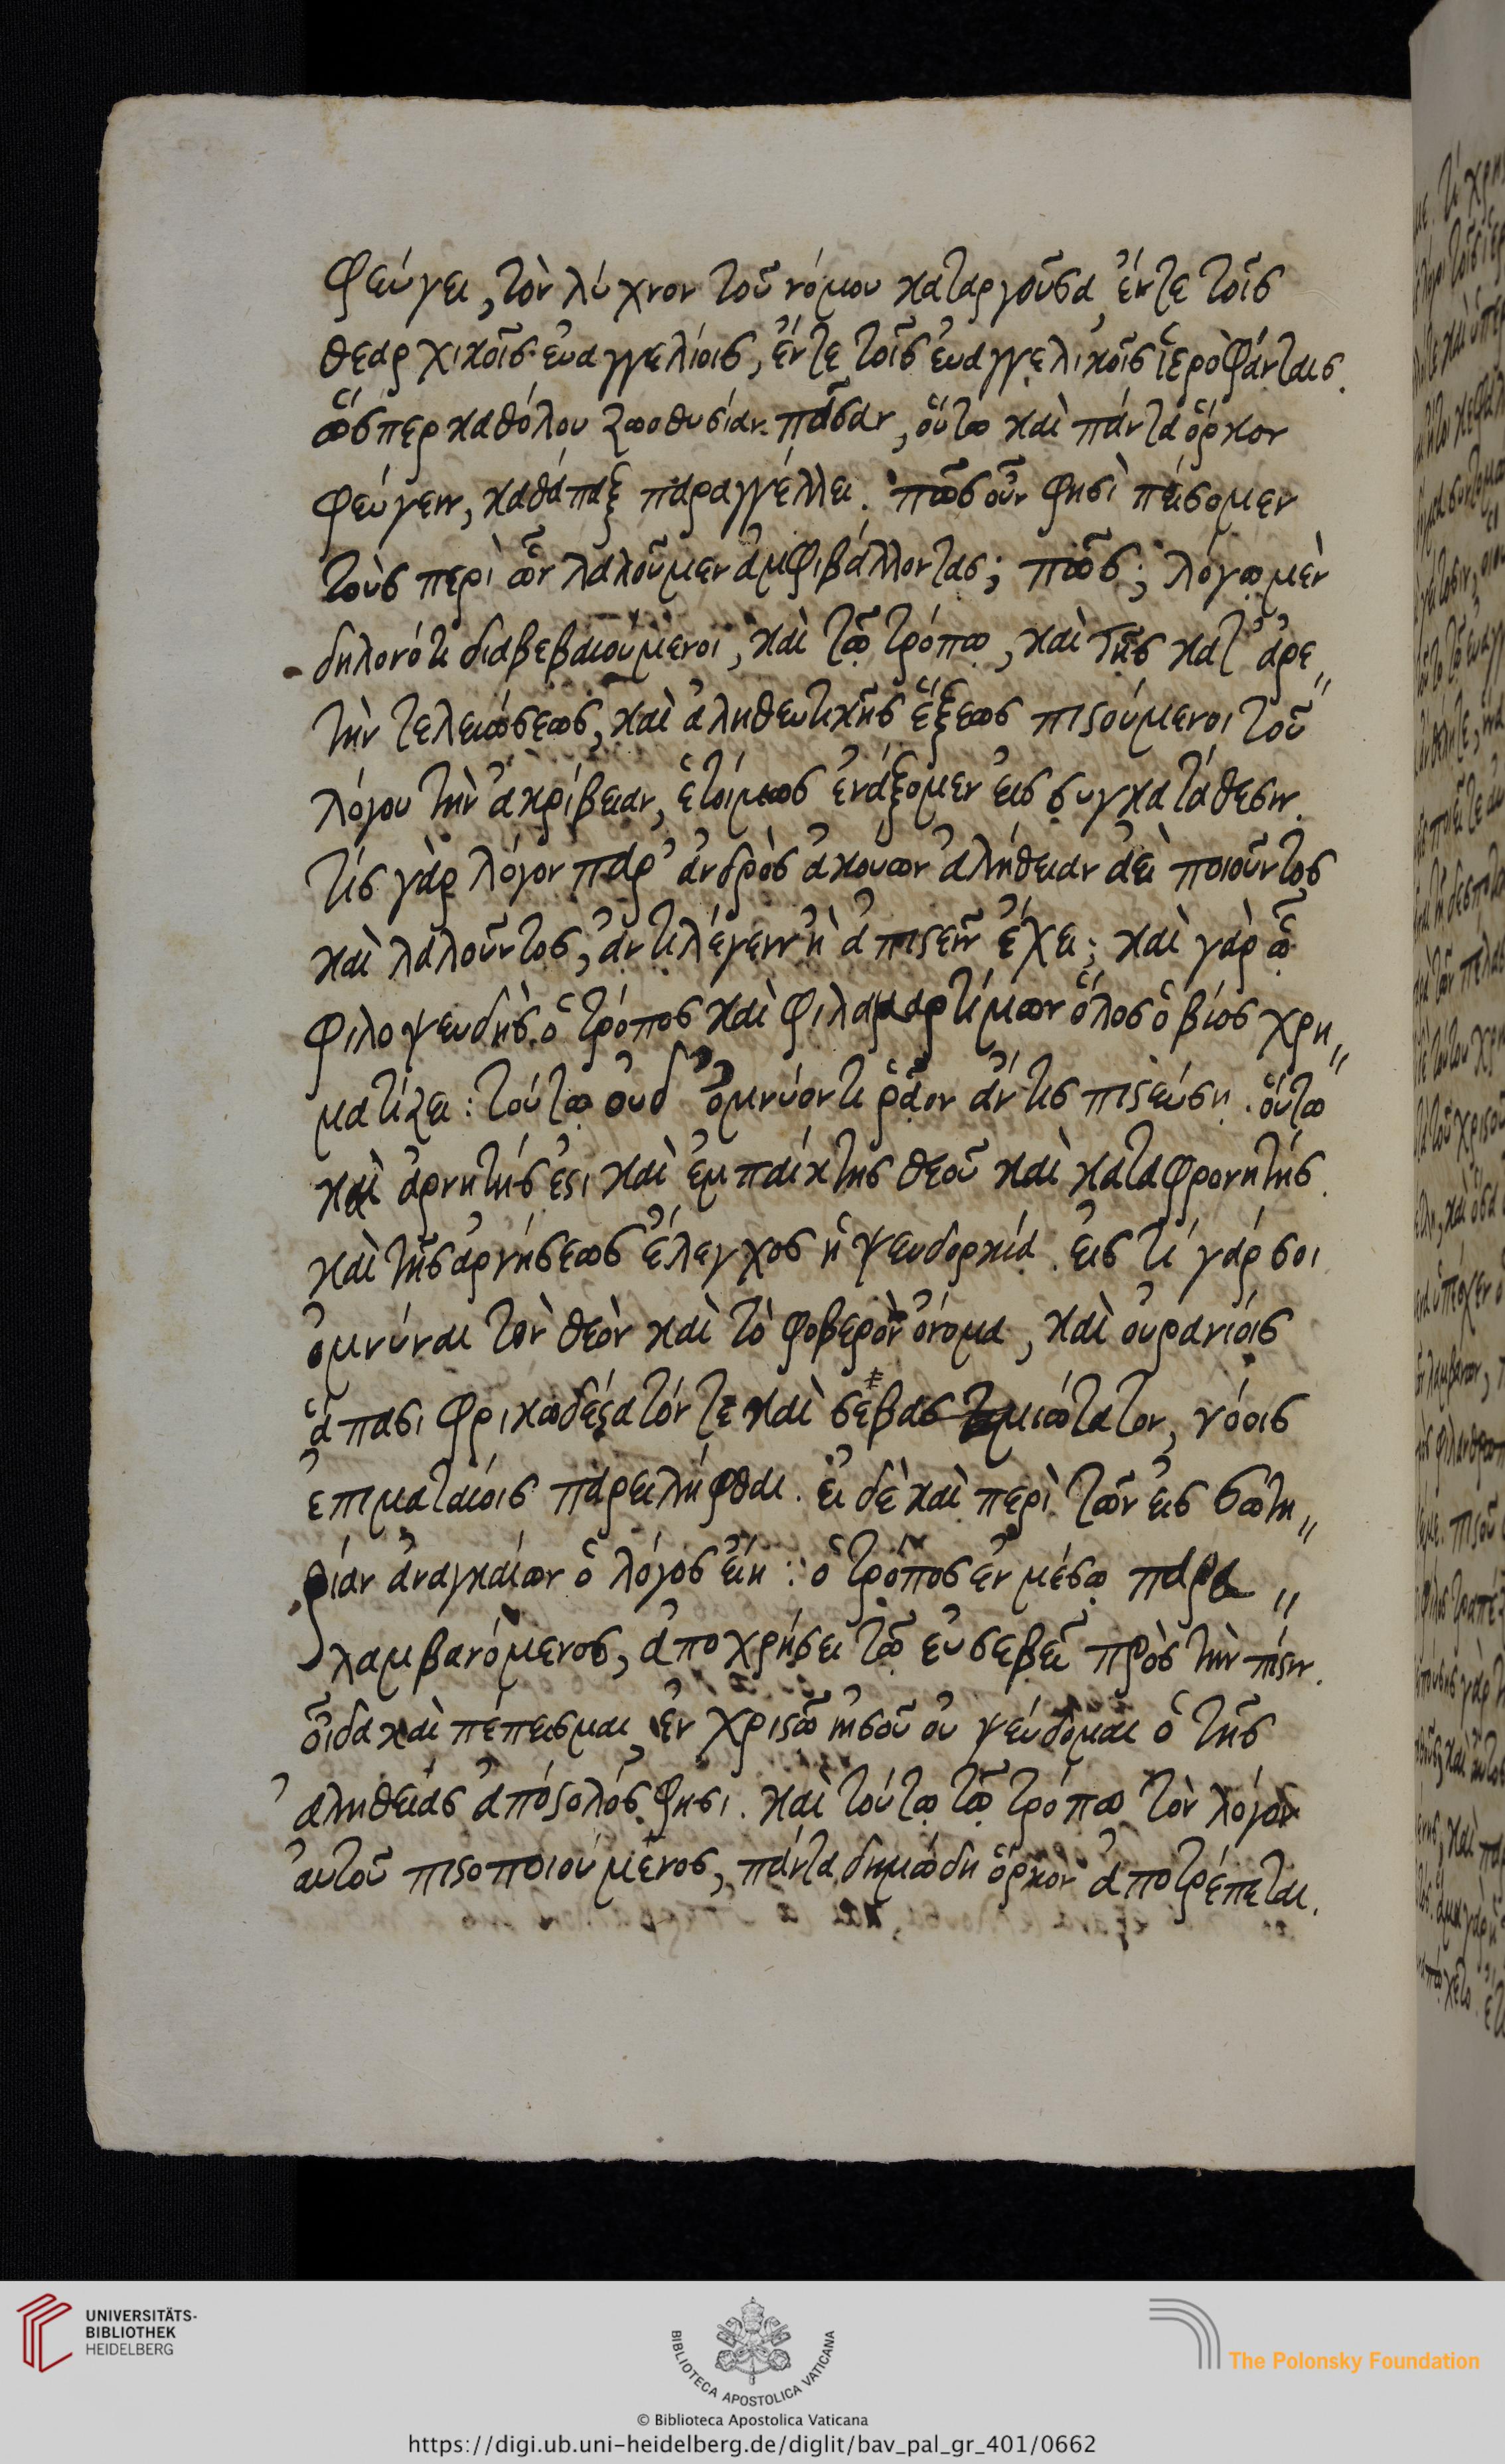 φεύγει, τὸν λύχνον τοῦ νόμου καταργοῦσα, ἔν τε τοῖς
θεαρχικοῖς εὐαγγελίοις, ἔν τε τοῖς εὐαγγελικοῖς ἱεροφάνταις.
ὥσπερ καθόλου ζωοθυσίαν πᾶσαν, οὕτω καὶ πάντα ὅρκον
φεύγειν, καθάπαξ παραγγέλλει. πῶς οὖν φησὶ πείσομεν
τοὺς περὶ ὧν λαλοῦμεν ἀμφιβάλλοντας; πῶς; λόγῳ μὲν
δηλονότι διαβεβαιούμενοι, καὶ τῷ τρόπῳ, καὶ τῆς κατ' ἀρε〃
τὴν τελειώσεως, καὶ ἀληθευτικῆς ἕξεως πιστούμενοι τοῦ
λόγου τὴν ἀκρίβειαν, ἑτοίμως ἐνάξομεν εἰς συγκατάθεσιν.
τίς γὰρ λόγον παρ' ἀνδρὸς ἀκούων ἀλήθειαν ἀεὶ ποιοῦντος
καὶ λαλοῦντος, ἀντιλέγειν ἢ ἀπιστεῖν ἔχει; καὶ γὰρ ᾧ
φιλοψευδὴς ὁ τρόπος καὶ φιλαμαρτίμων ὅλος ὁ βίος χρη〃
ματίζει: τούτῳ οὐδ' ὀμνύοντι ῥᾷον ἄν τις πιστεύσῃ. οὕτω
καὶ ἀρνητής ἐστι καὶ ἐμπαίκτης θεοῦ καὶ καταφρονητής.
καὶ τῆς ἀρνήσεως ἔλεγχος ἡ ψευδορκία. εἰς τί γάρ σοι
ὀμνύναι τὸν θεὸν καὶ τὸ φοβερὸν ὄνομα, καὶ οὐρανίοις
ἅπασι φρικωδέστατόν τε καὶ σεβασμιώτατον, νόοις
ἐπιματαίοις παρειλήφθαι. εἰ δὲ καὶ περὶ τῶν εἰς σωτη〃
ρίαν ἀναγκαίων ὁ λόγος εἴη: ὁ τρόπος ἐν μέσῳ παρα〃
λαμβανόμενος, ἀποχρήσει τῷ εὐσεβεῖ πρὸς τὴν πίστιν.
οἶδα καὶ πέπεισμαι, ἐν χριστῷ ἰησοῦ οὐ ψεύδομαι ὁ τῆς
ἀληθείας ἀπόστολός φησι. καὶ τούτῳ τῷ τρόπῳ τὸν λόγον
αὐτοῦ πιστοποιούμενος, πάντα δημώδη ὅρκον ἀποτρέπεται.
UNIVERSITÄTS-
BIBLIOTHEK
HEIDELBERG
BIBLIOTECA APOSTOLICA VATICANA
The Polonsky Foundation
© Biblioteca Apostolica Vaticana
https://digi.ub.uni-heidelberg.de/diglit/bav_pal_gr_401/0662